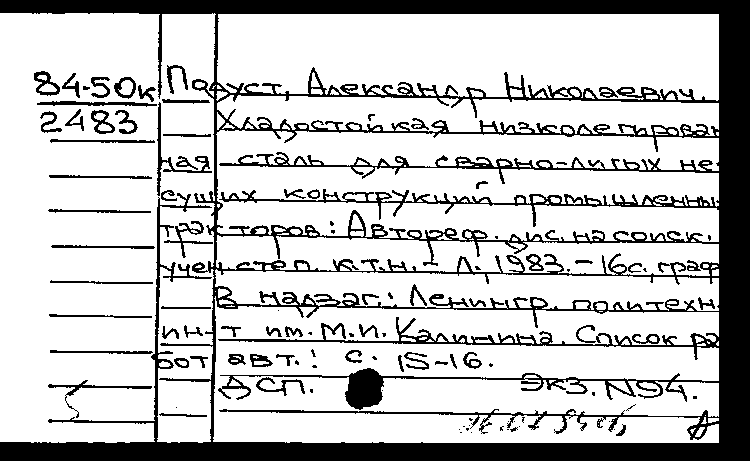 84-50к Подуст, Александр Николаевич.
2483 Хладостойкая низколегирован
ная сталь для сварно-литых не-
сущих конструкций промышленны
тракторов: Автореф. дис. на соиск.
учен. степ. к.т.н. - Л., 1983. - 16с, граф
В надзаг.: Ленингр. политехн
ин-т им. М.И. Калинина. Список ра
бот авт.: с. 15-16.
ДСП. Экз. N94.